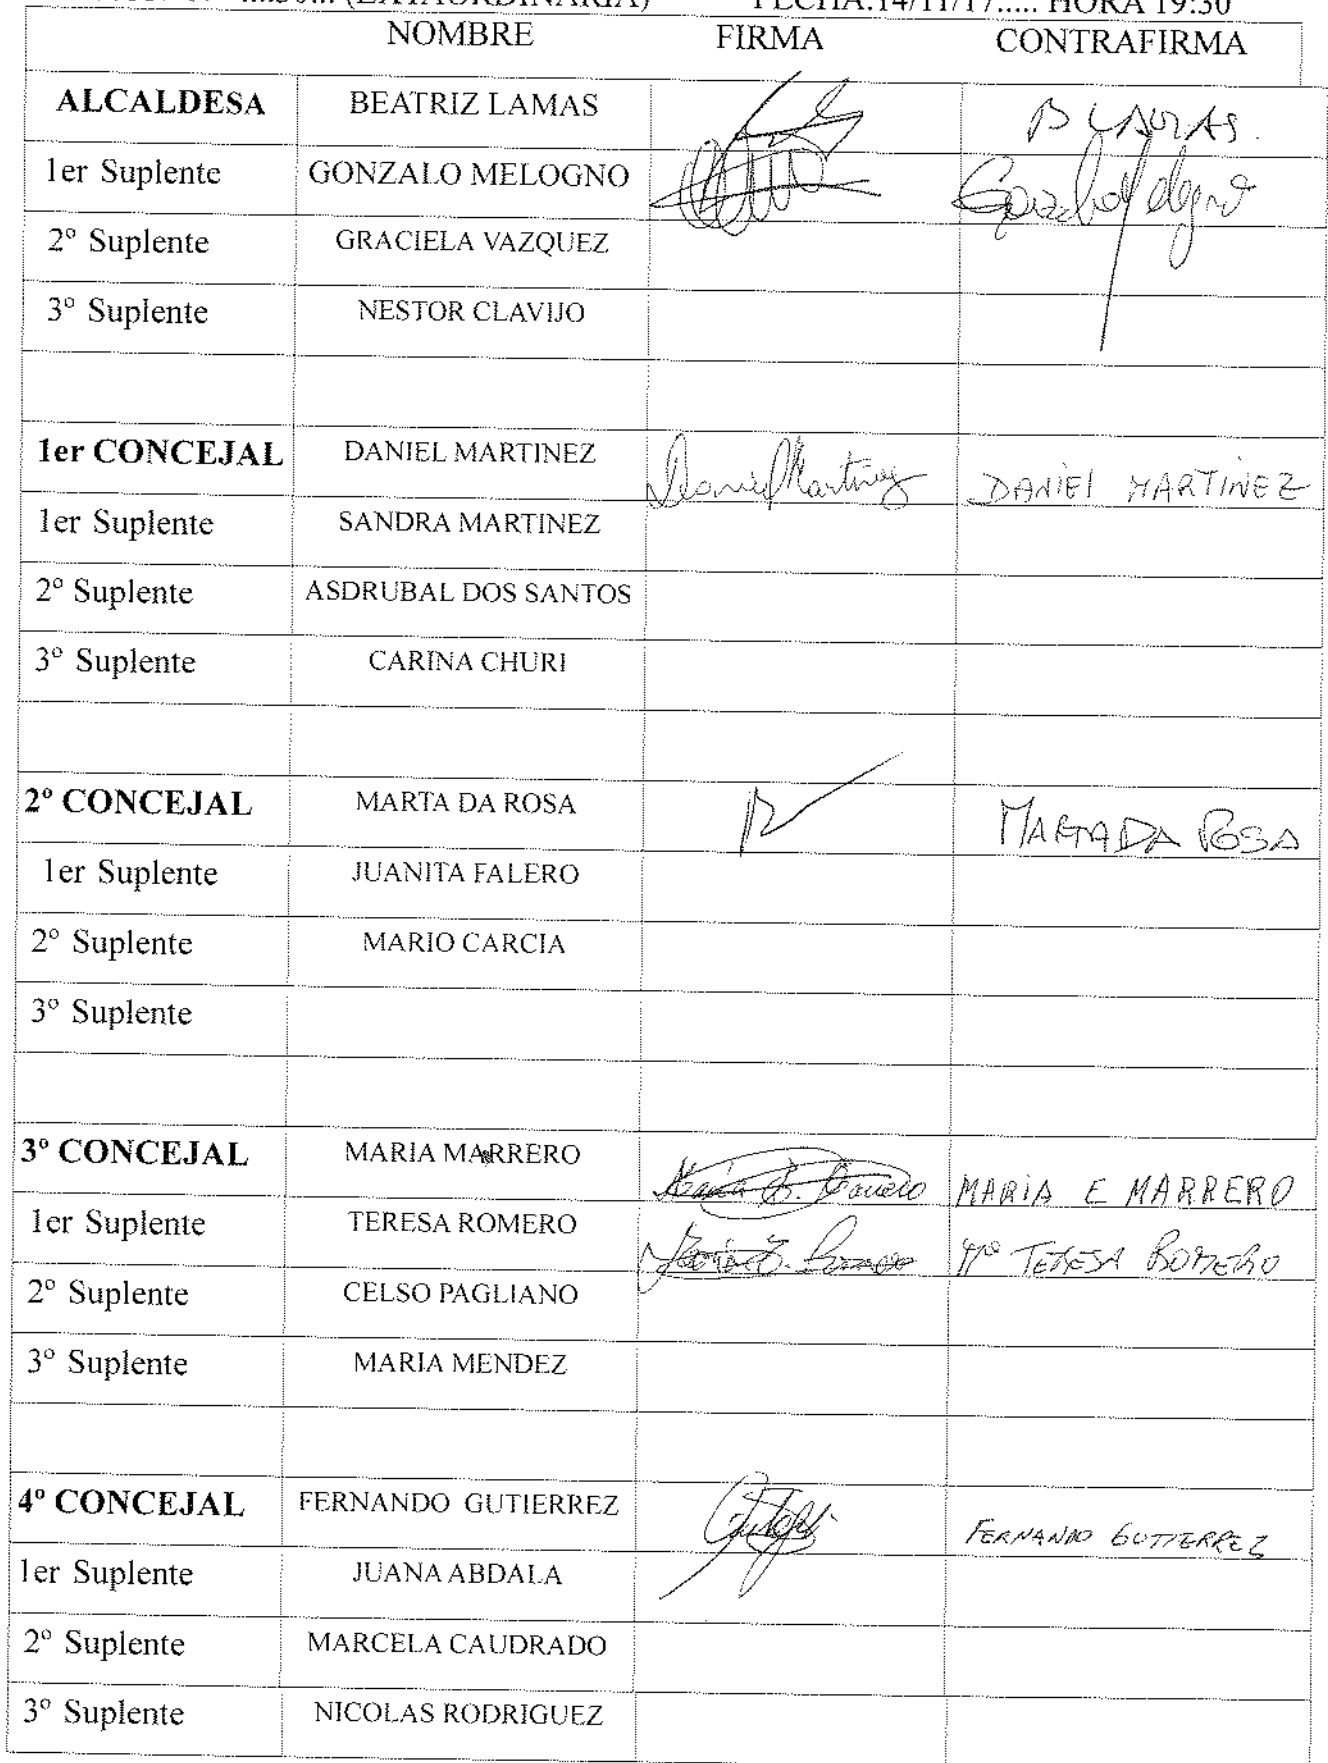 (EXTAORDINARIA) FECHA:14/11/17..... HORA 19:30
NOMBRE FIRMA CONTRAFIRMA
ALCALDESA BEATRIZ LAMAS B LAMAS.
1er Suplente GONZALO MELOGNO Gonzalo Melogno
2º Suplente GRACIELA VAZQUEZ
3º Suplente NESTOR CLAVIJO
1er CONCEJAL DANIEL MARTINEZ Daniel Martinez DANIEl MARTINEZ
1er Suplente SANDRA MARTINEZ
2º Suplente ASDRUBAL DOS SANTOS
3º Suplente CARINA CHURI
2º CONCEJAL MARTA DA ROSA MARTA DA ROSA
1er Suplente JUANITA FALERO
2º Suplente MARIO CARCIA
3º Suplente
3º CONCEJAL MARIA MARRERO María E. Marrero MARIA E MARRERO
1er Suplente TERESA ROMERO María T. Romero Mª TERESA ROMERO
2º Suplente CELSO PAGLIANO
3º Suplente MARIA MENDEZ
4º CONCEJAL FERNANDO GUTIERREZ FERNANDO GUTIERREZ
1er Suplente JUANA ABDALA
2º Suplente MARCELA CAUDRADO
3º Suplente NICOLAS RODRIGUEZ